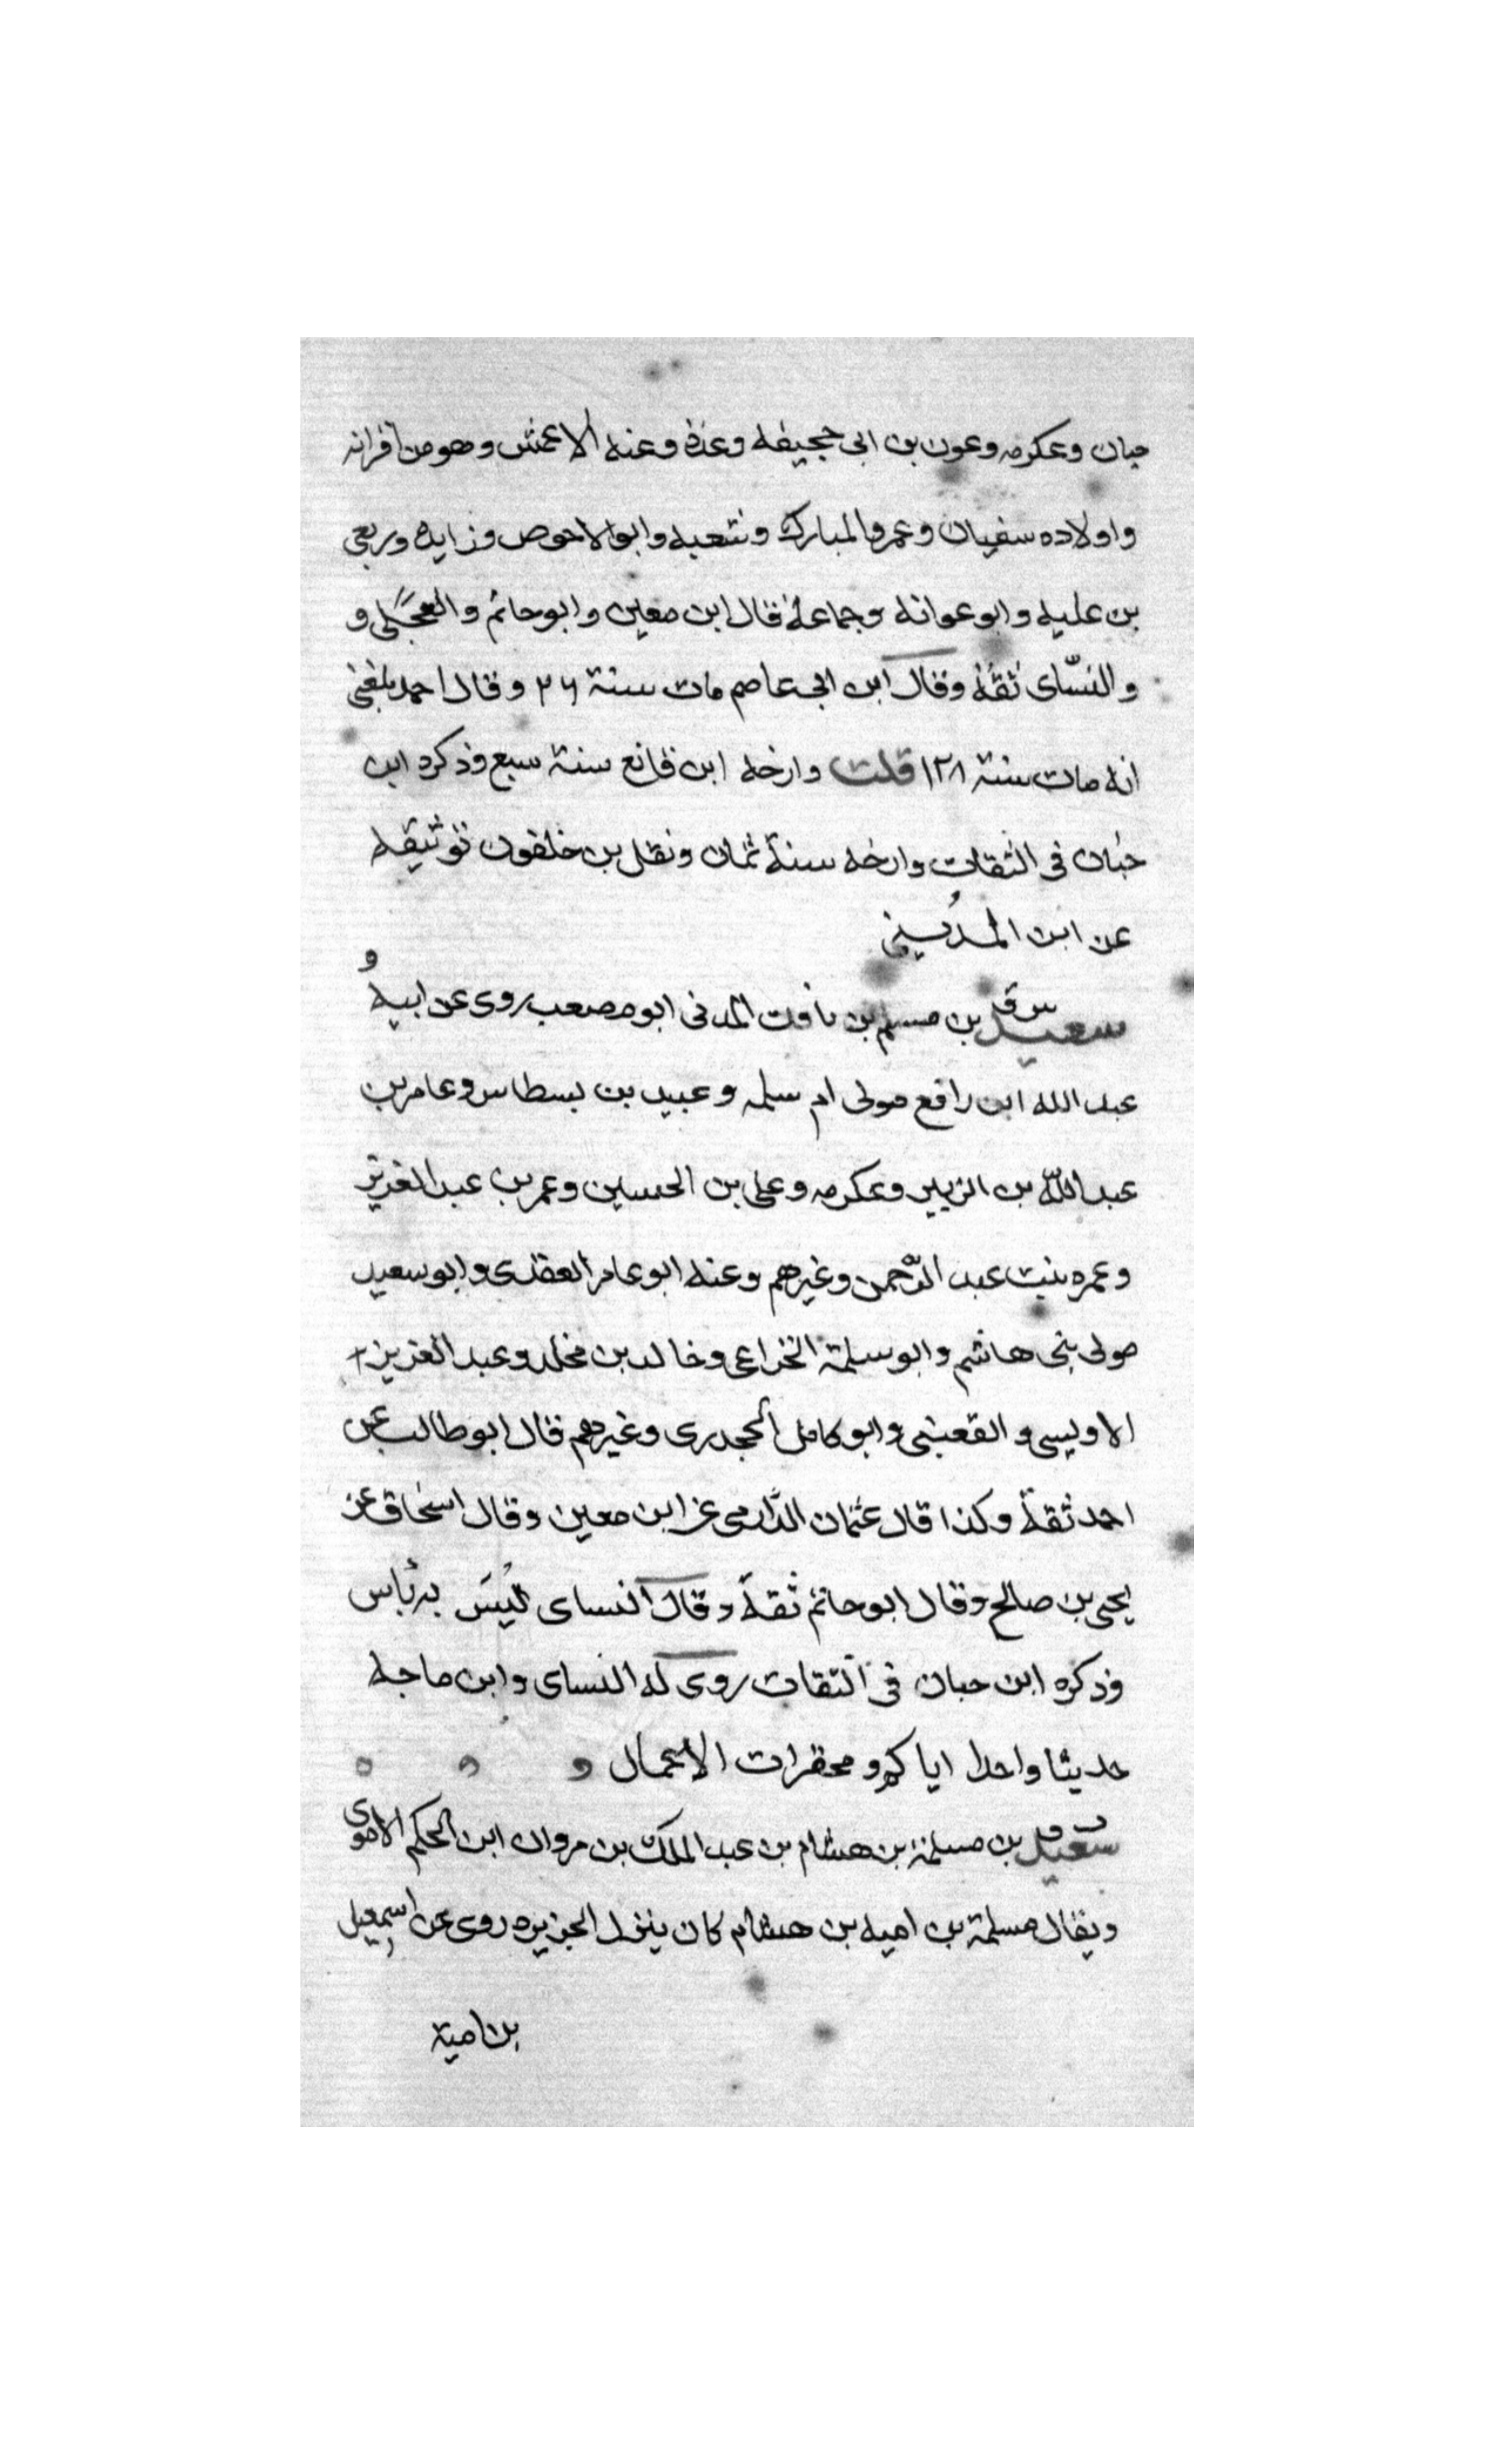 حبان وعكرمه وعون بن ابى جحيفه وعدة وعنه الاعمش وهو من اقرانه
واولاده سفيان وعمر والمبارك وشعبه وابو الاحوص وزايده وربعى
بن عليه وابو عوانه وجماعة قال ابن معين وابو حاتم والعجلى و
والنسّاى ثقة وقال ابن ابى عاصم مات سنة ٢٦ وقال احمد بلغنى
انه مات سنة ١٢٨ قلت وارخه ابن قانع سنة سبع وذكره ابن
حبان فى الثقات وارخه سنة ثمان ونقل بن خلفون توثيقه
عن ابن المدينى
سعيد س ق بن مسلم بن بانك المدنى ابو مصعب روى عن ابيه و
عبد الله ابن رافع مولى ام سلمه وعبيد بن بسطاس وعامر بن
عبد اللّه بن الزبير وعكرمه وعلى بن الحسين وعمر بن عبد العزيز
وعمره بنت عبد الرّحمن وغيرهم وعنه ابو عامر العقدى وابو سعيد
مولى بنى هاشم وابو سلمة الخزاعى وخالد بن مخلد وعبد العزيز
الاويسى والقعنبى وابو كامل الجحدرى وغيرهم قال ابو طالب عن
احمد ثقة وكذا قال عثمان الدّارمى عن ابن معين وقال اسحاق عن
يحيى بن صالح وقال ابو حاتم ثقة وقال النساى ليس به باس
وذكره ابن حبان فى الثقات روى له النساى وابن ماجه
حديثا واحدا اياكم ومحقرات الاعمال
سعيد ت ق بن مسلمة بن هشام بن عبد الملك بن مروان ابن الحكم الاموى
ويقال مسلمة بن اميه بن هشام كان ينزل الجزيره روى عن اسمعيل
بن امية